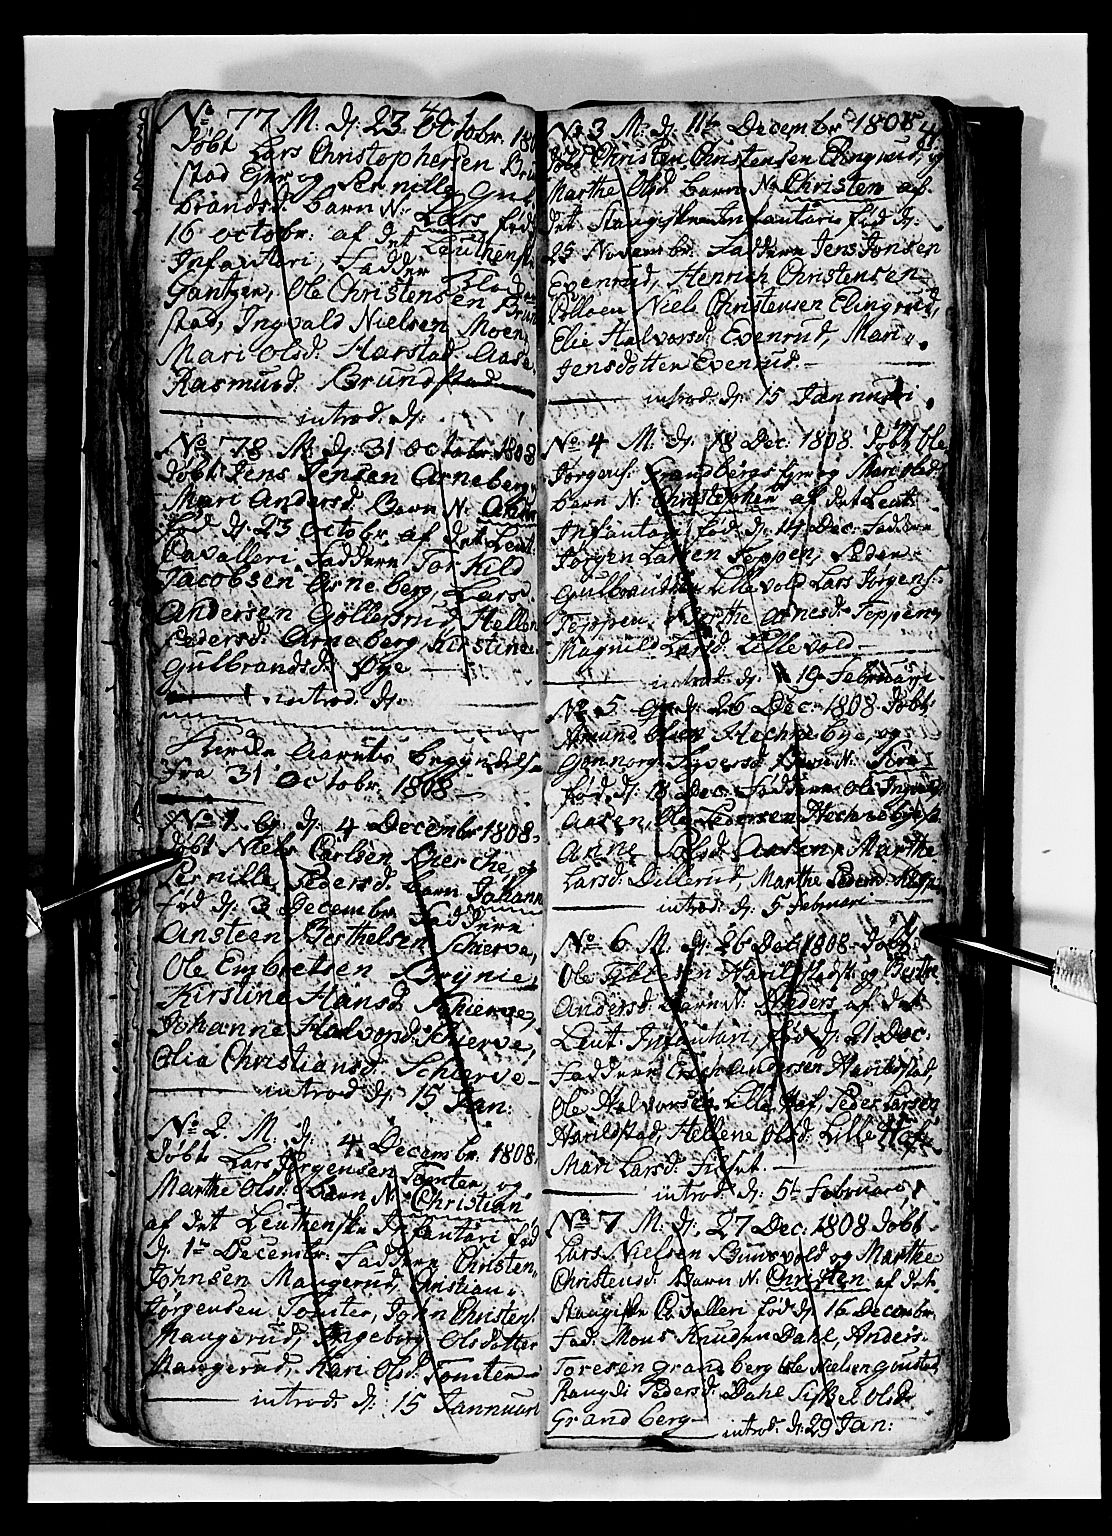 No 77 M. d. 23 Octobr. 180
døbt Lars Christophersen Brun
stad Eier og Pernille Gul
brandsd. barn N. Lars fød
16 octobr. af det Leuthensk
Infantteri, Fadder
Gantzer, Ole Christensen Brun
stad, Ingvald Nielsen Moen,
Mari Olsd. Harstad Aase
Rasmusd. Brundstad
introd. d.
No 78 M. d. 31 octobr. 1808
døbt Jens Jensen Arneberg,
Mari Andersd. Barn N.
fød d. 23 Octobr. af det Leut.
Cavalleri. Faddere, Torkild
Jacobsen Arneberg, Lars
Andersen Gøllerud, Hellen
Pedersd. Arneberg, Kirstine
Gulbrandsd. Øye
introd. d.
Kirke Aarets begyndelse
fra 31 Octobr. 1808
No 1. d. 4 Decembr 1808
døbt Niels Carlsen Bierche, og
Pernille Pedersd. barn Johann
fød d. 3 Decembr. Faddere
Ansteen Berthelsen Schierve,
Ole Embretsen Brynie,
Kirstine Hansd. Schierve,
Johanne Halvorsd. Schierve,
Olia Christiansd. Schierve
introd d. 15 Jan:
No 2. M. d. 4 Decembr. 1808
døbt Lars Jørgensen Tomter, og
Marthe Olsd. barn N. Christian
af det Leuthenske Infantari fød
d. 1te Decembr. Faddere Christen
Johnsen Maugerud, Christian
Jørgensen Tomter, John Christens.
Maugerud, Ingeborg Olsdotter
Maugerud, Kari Olsd. Tomter
introd. d. 15 Jannuari
No 3 M. d. 11te Decembr 1808
døbt Christen Christensen Elingrud, og
Marthe Olsd. barn N. Christen af
det Stangiske Infantari fød d.
25 Novembr. Faddere Jens Jonsen
Evenrud, Henrich Christensen
Niels Christensen Elingrud,
Elie Halvorsd. Evenrud, Mari
Jensdotter Evenrud.
introd. d. 15 Jannuari
No 4 M. d. 18 Dec. 1808. døbt Ole
Jørgens. Grandberg og Mari Olsd.
barn N. Christopher af det Leut.
Infantari fød d. 14 Dec. Faddere
Jørgen Larsen Teppen, Peder
Gulbrandsen Lillevold Lars Jørgens.
Teppen, Berthe Arnesd. Teppen,
Magnild Larsd. Lillevold
introd. d. 19 Februari
No 5 d. 26 Dec. 1808. døbt
Amund Olsen Hechnebye, og
Gunnorg Syversd. barn N.
fød. d. 18 Dec. Faddere Ole
Aasen, Ole Pedersen Hechnebye
Anne Olsd. Aasen, Marthe
Larsd. Dillerud, Marthe
introd. d. 5 Februari
No 6 M. d. 26 Dec 1808. døbt
Ole Harildstad og Berthe
Andersd. barn N. Anders af det
Leut. Infantari, fød d. 21 Dec.
Faddere Andersen Harildstad,
Ole Halvorsen Lille Hof, Peder Larsen
Harildstad, Hellene Olsd. Lille Hof,
Mari Larsd.
introd. d. 5te Februari
No 7 M. d. 27 Dec. 1808 døbt
Lars Nielsen og Marthe
Christensd. barn N. Christen af det
Stangiske Cavalleri fød d. 16 Decembr
Fad. Mons Knudsen Dahl, Anders
Toresen grandberg Ole Nielsen
Rangdi Pedersd. Dahl Olsd.
Grandberg
introd. d. 29 Jan: